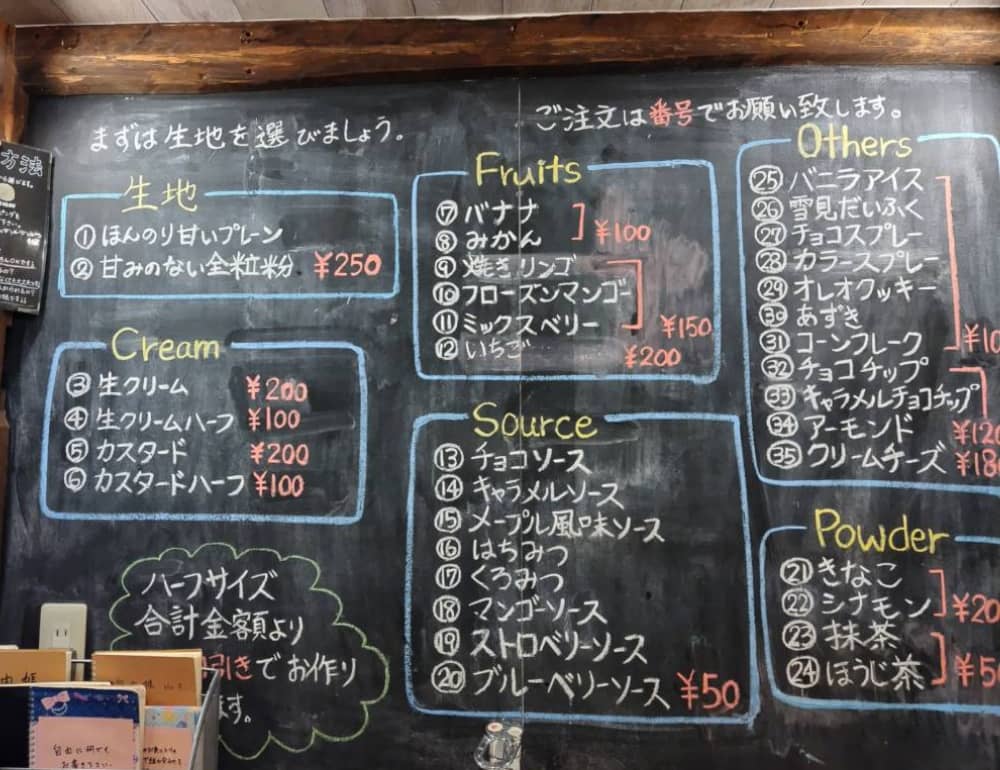 まずは生地を選びましょう。
ご注文は番号でお願い致します。
生地
① ほんのり甘いプレーン
② 甘みのない全粒粉 ¥250
Cream
③ 生クリーム ¥200
④ 生クリームハーフ ¥100
⑤ カスタード ¥200
⑥ カスタードハーフ ¥100
ハーフサイズ
合計金額より
引きでお作り
ます。
Fruits
⑦ バナナ
⑧ みかん ¥100
⑨ 焼きリンゴ
⑩ フローズンマンゴー
⑪ ミックスベリー ¥150
⑫ いちご ¥200
Source
⑬ チョコソース
⑭ キャラメルソース
⑮ メープル風味ソース
⑯ はちみつ
⑰ くろみつ
⑱ マンゴーソース
⑲ ストロベリーソース
⑳ ブルーベリーソース ¥50
Others
㉕ バニラアイス
㉖ 雪見だいふく
㉗ チョコスプレー
㉘ カラースプレー
㉙ オレオクッキー
㉚ あずき
㉛ コーンフレーク ¥10
㉜ チョコチップ
㉝ キャラメルチョコチップ
㉞ アーモンド ¥120
㉟ クリームチーズ ¥180
Powder
㉑ きなこ
㉒ シナモン ¥20
㉓ 抹茶
㉔ ほうじ茶 ¥5
方法
自由に何でも
お書き下さい